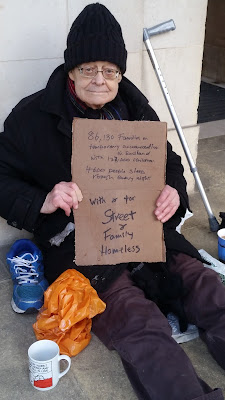 86,130 Families in
temporary accommodation
in England
with 127,000 children
people sleep
through every night
With or for
Street
&
Family
Homeless